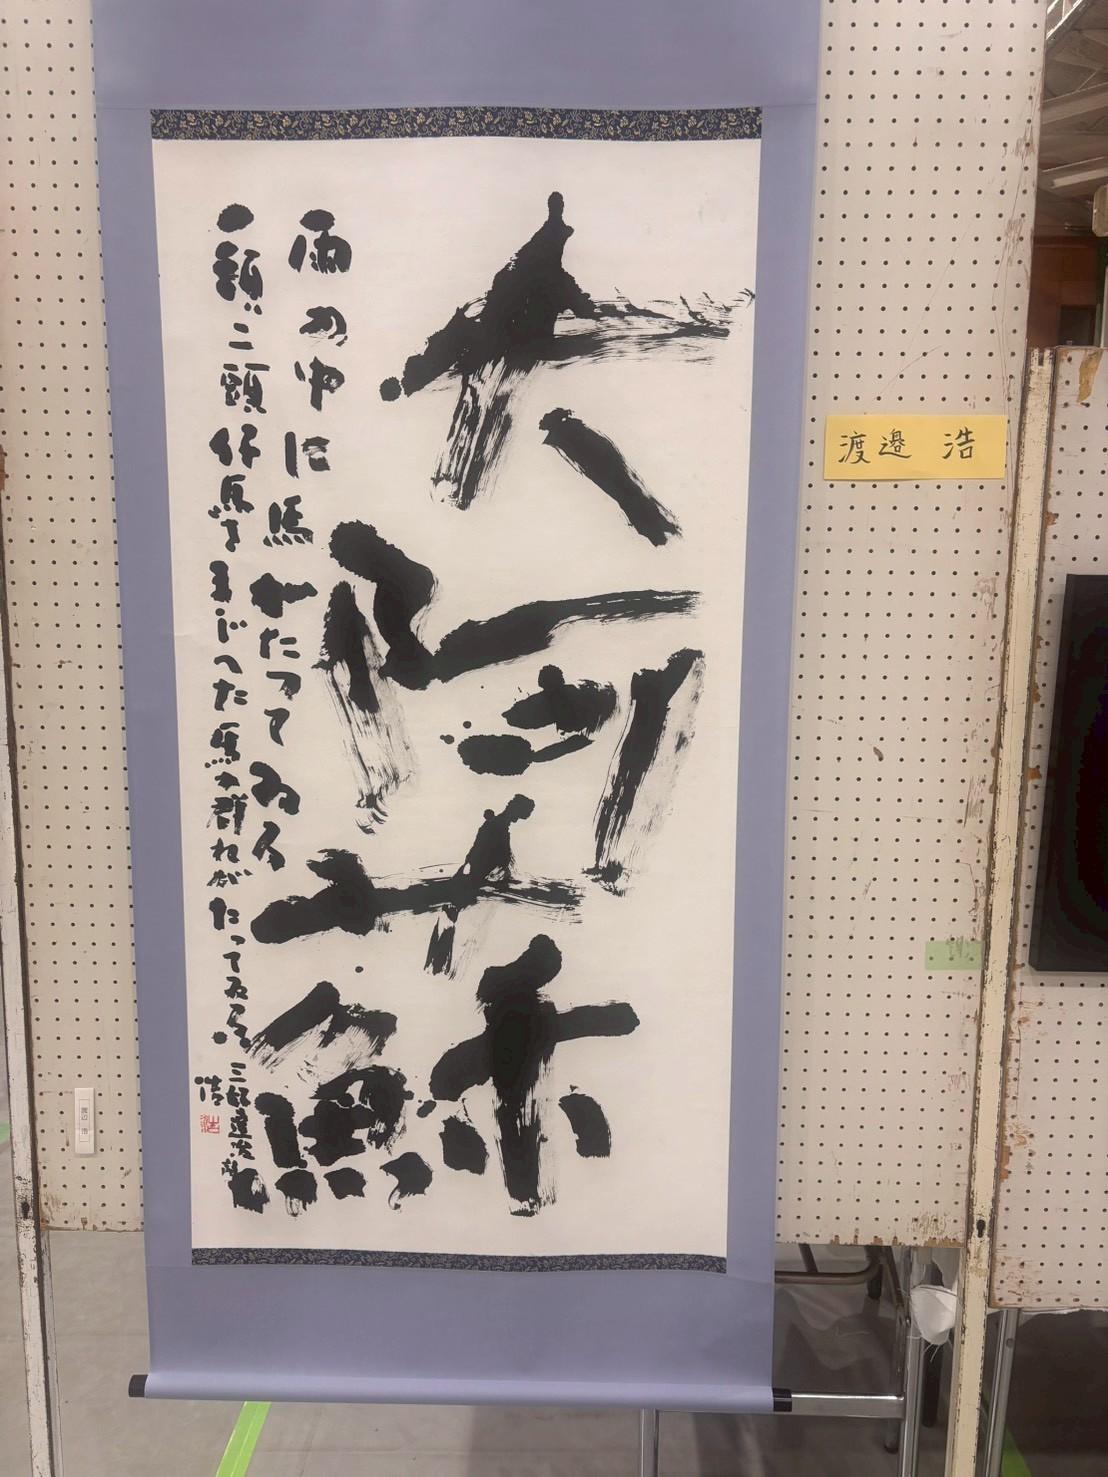 大阿蘇
雨の中に馬がたつてゐる
一頭二頭仔馬をまじへた馬の群れがたつてゐる
三好達治詩
浩
渡邉 浩
渡辺 浩